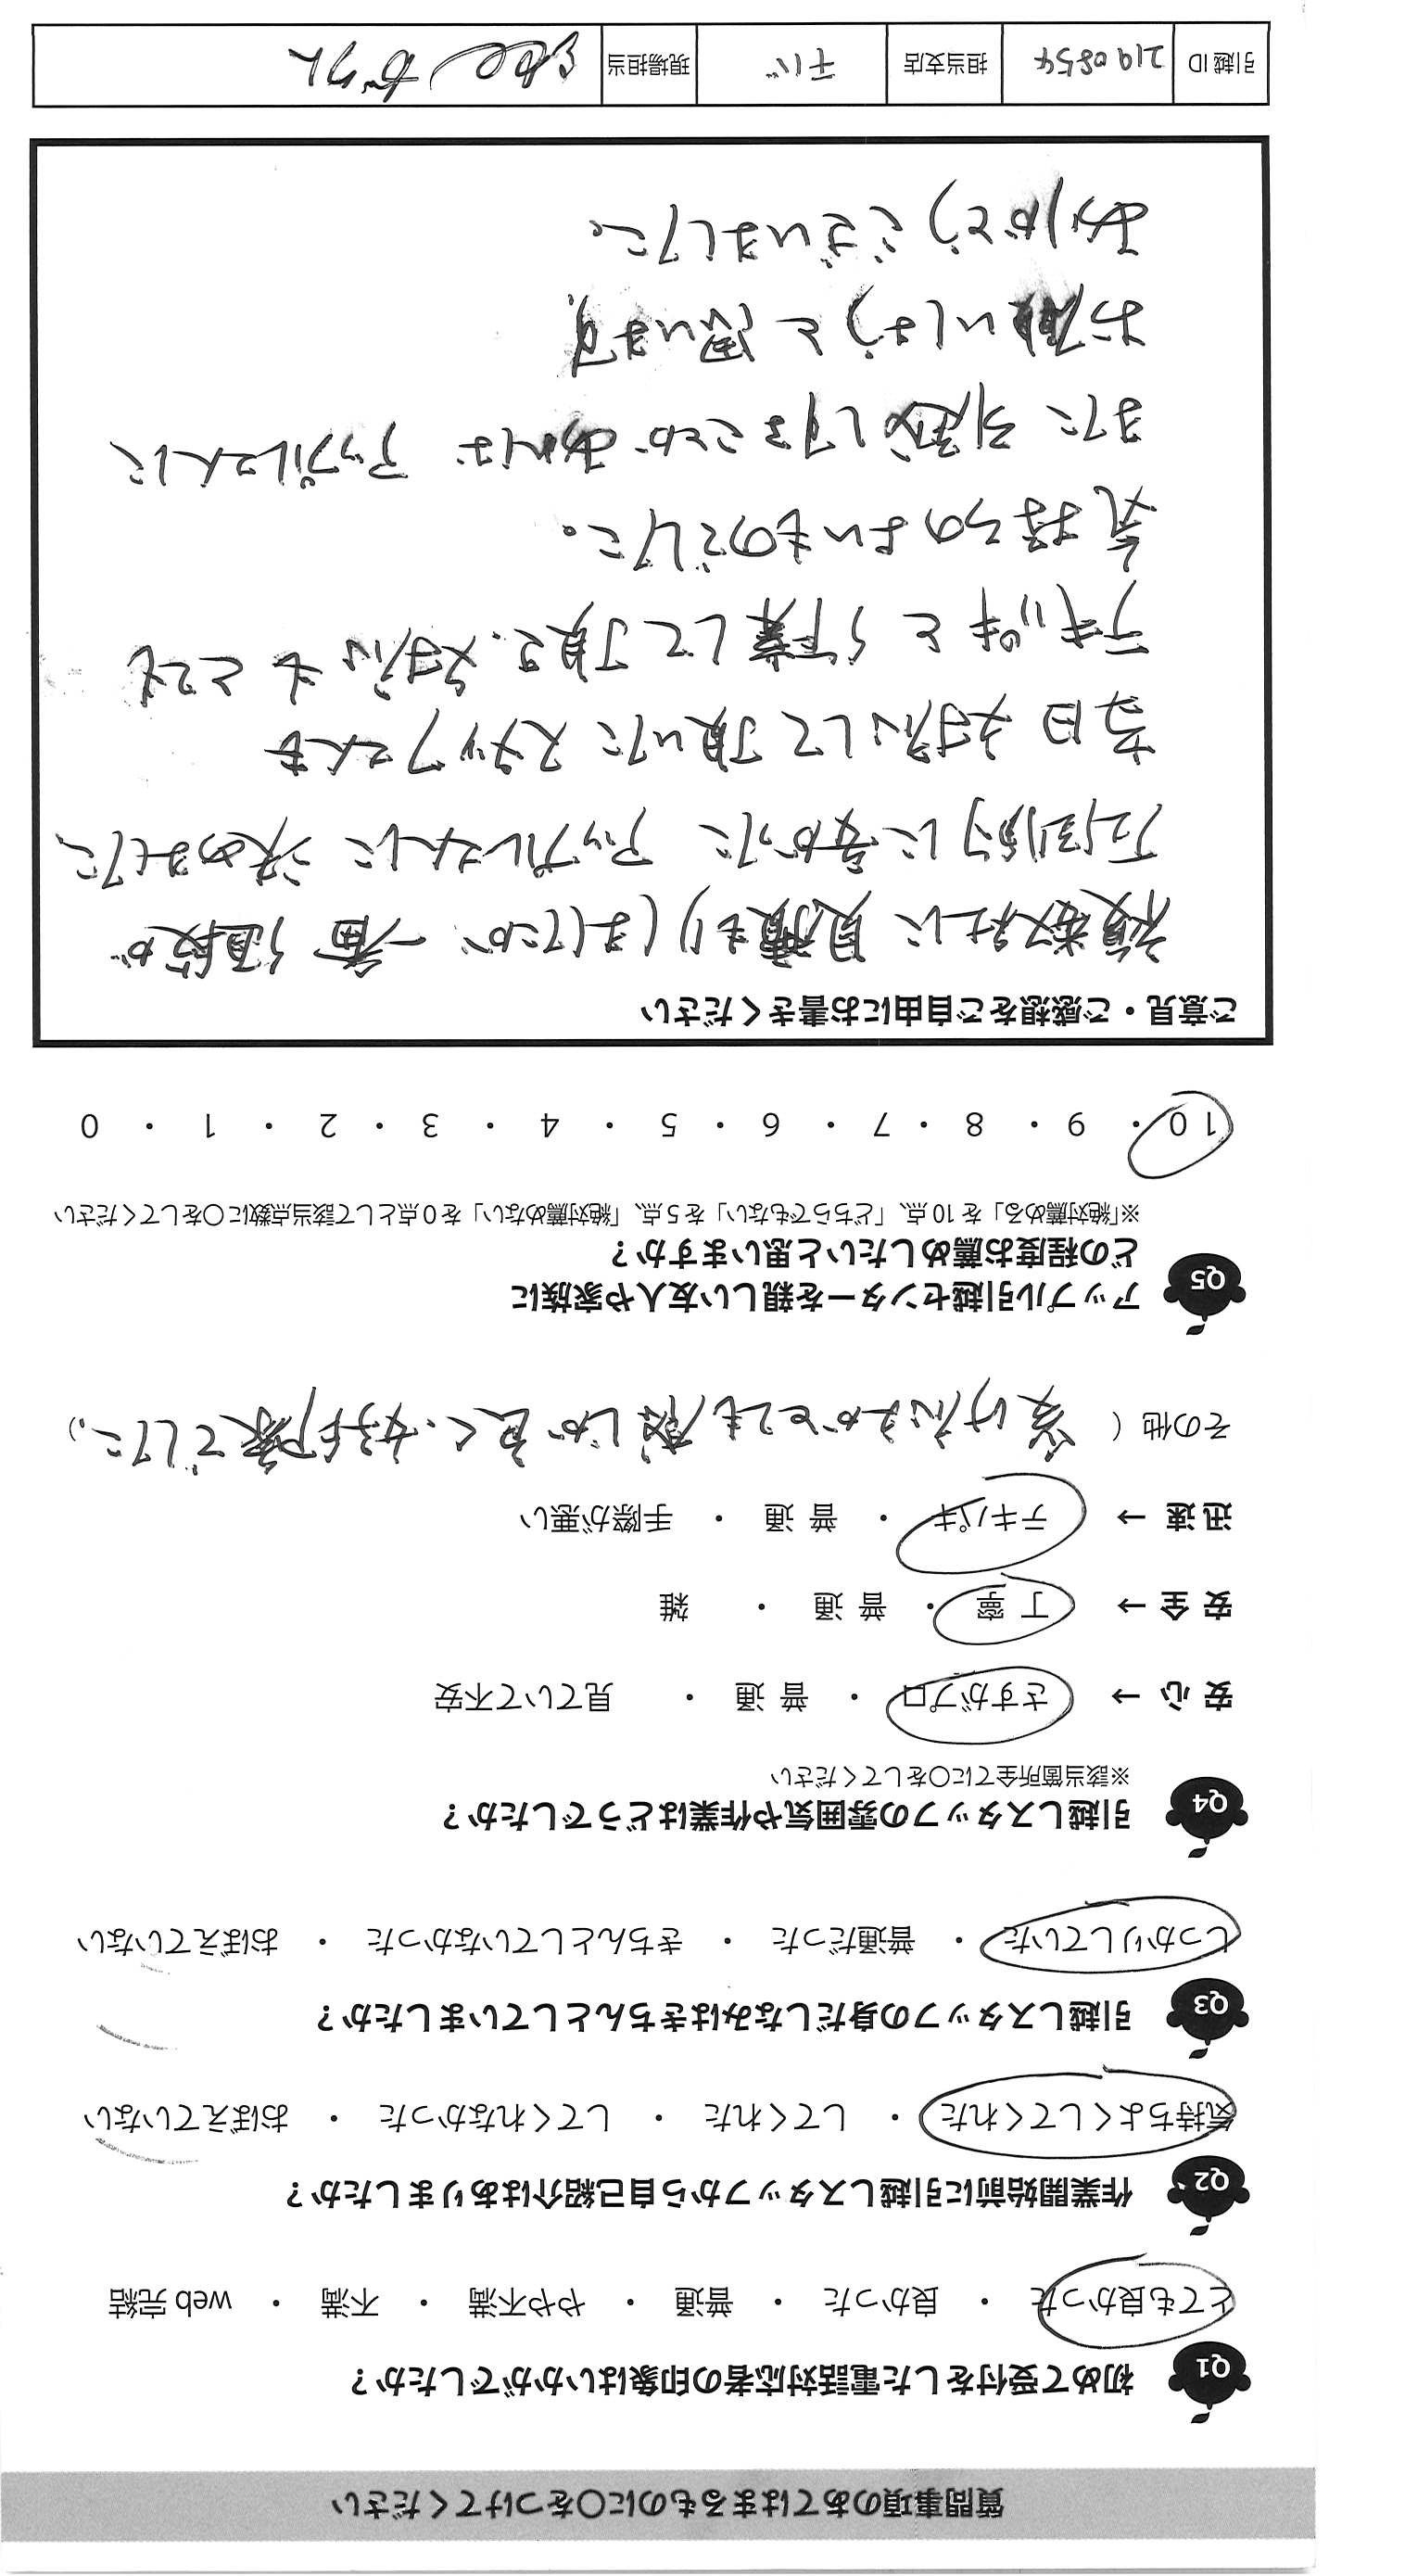 質問事項のあてはまるものに〇をつけてください
Q1 初めて受付をした電話対応者の印象はいかがでしたか？
とても良かった ・ 良かった ・ 普通 ・ やや不満 ・ 不満 ・ web 完結
Q2 作業開始前に引越しスタッフから自己紹介はありましたか？
気持ちよくしてくれた ・ してくれた ・ してくれなかった ・ おぼえていない
Q3 引越しスタッフの身だしなみはきちんとしていましたか？
しっかりしていた ・ 普通だった ・ きちんとしていなかった ・ おぼえていない
Q4 引越しスタッフの雰囲気や作業はどうでしたか？
※該当箇所全てに〇をしてください
安 心 → さすがプロ ・ 普 通 ・ 見ていて不安
安 全 → 丁 寧 ・ 普 通 ・ 雑
迅 速 → テキパキ ・ 普 通 ・ 手際が悪い
その他 ( 受け応えがとても感じが良く、好印象でした。)
Q5 アップル引越センターを親しい友人や家族に
どの程度お薦めしたいと思いますか？
※「絶対薦める」を 10 点、「どちらでもない」を 5 点、「絶対薦めない」を 0 点として該当点数に〇をしてください
10 ・ 9 ・ 8 ・ 7 ・ 6 ・ 5 ・ 4 ・ 3 ・ 2 ・ 1 ・ 0
ご意見・ご感想をご自由にお書きください
複数社に見積もりしましたが、一番値段が
圧倒的に安かった アップルさんに 決めました、
当日 対応して頂いた スタッフさんも
テキパキと 作業して 頂き、対応も とても
気持ちのよいものでした。
また 引越しすることが あれば アップルさんに
お願いしようと 思います
ありがとうございました。
引越 ID 2190854 担当支店 チバ 現場担当